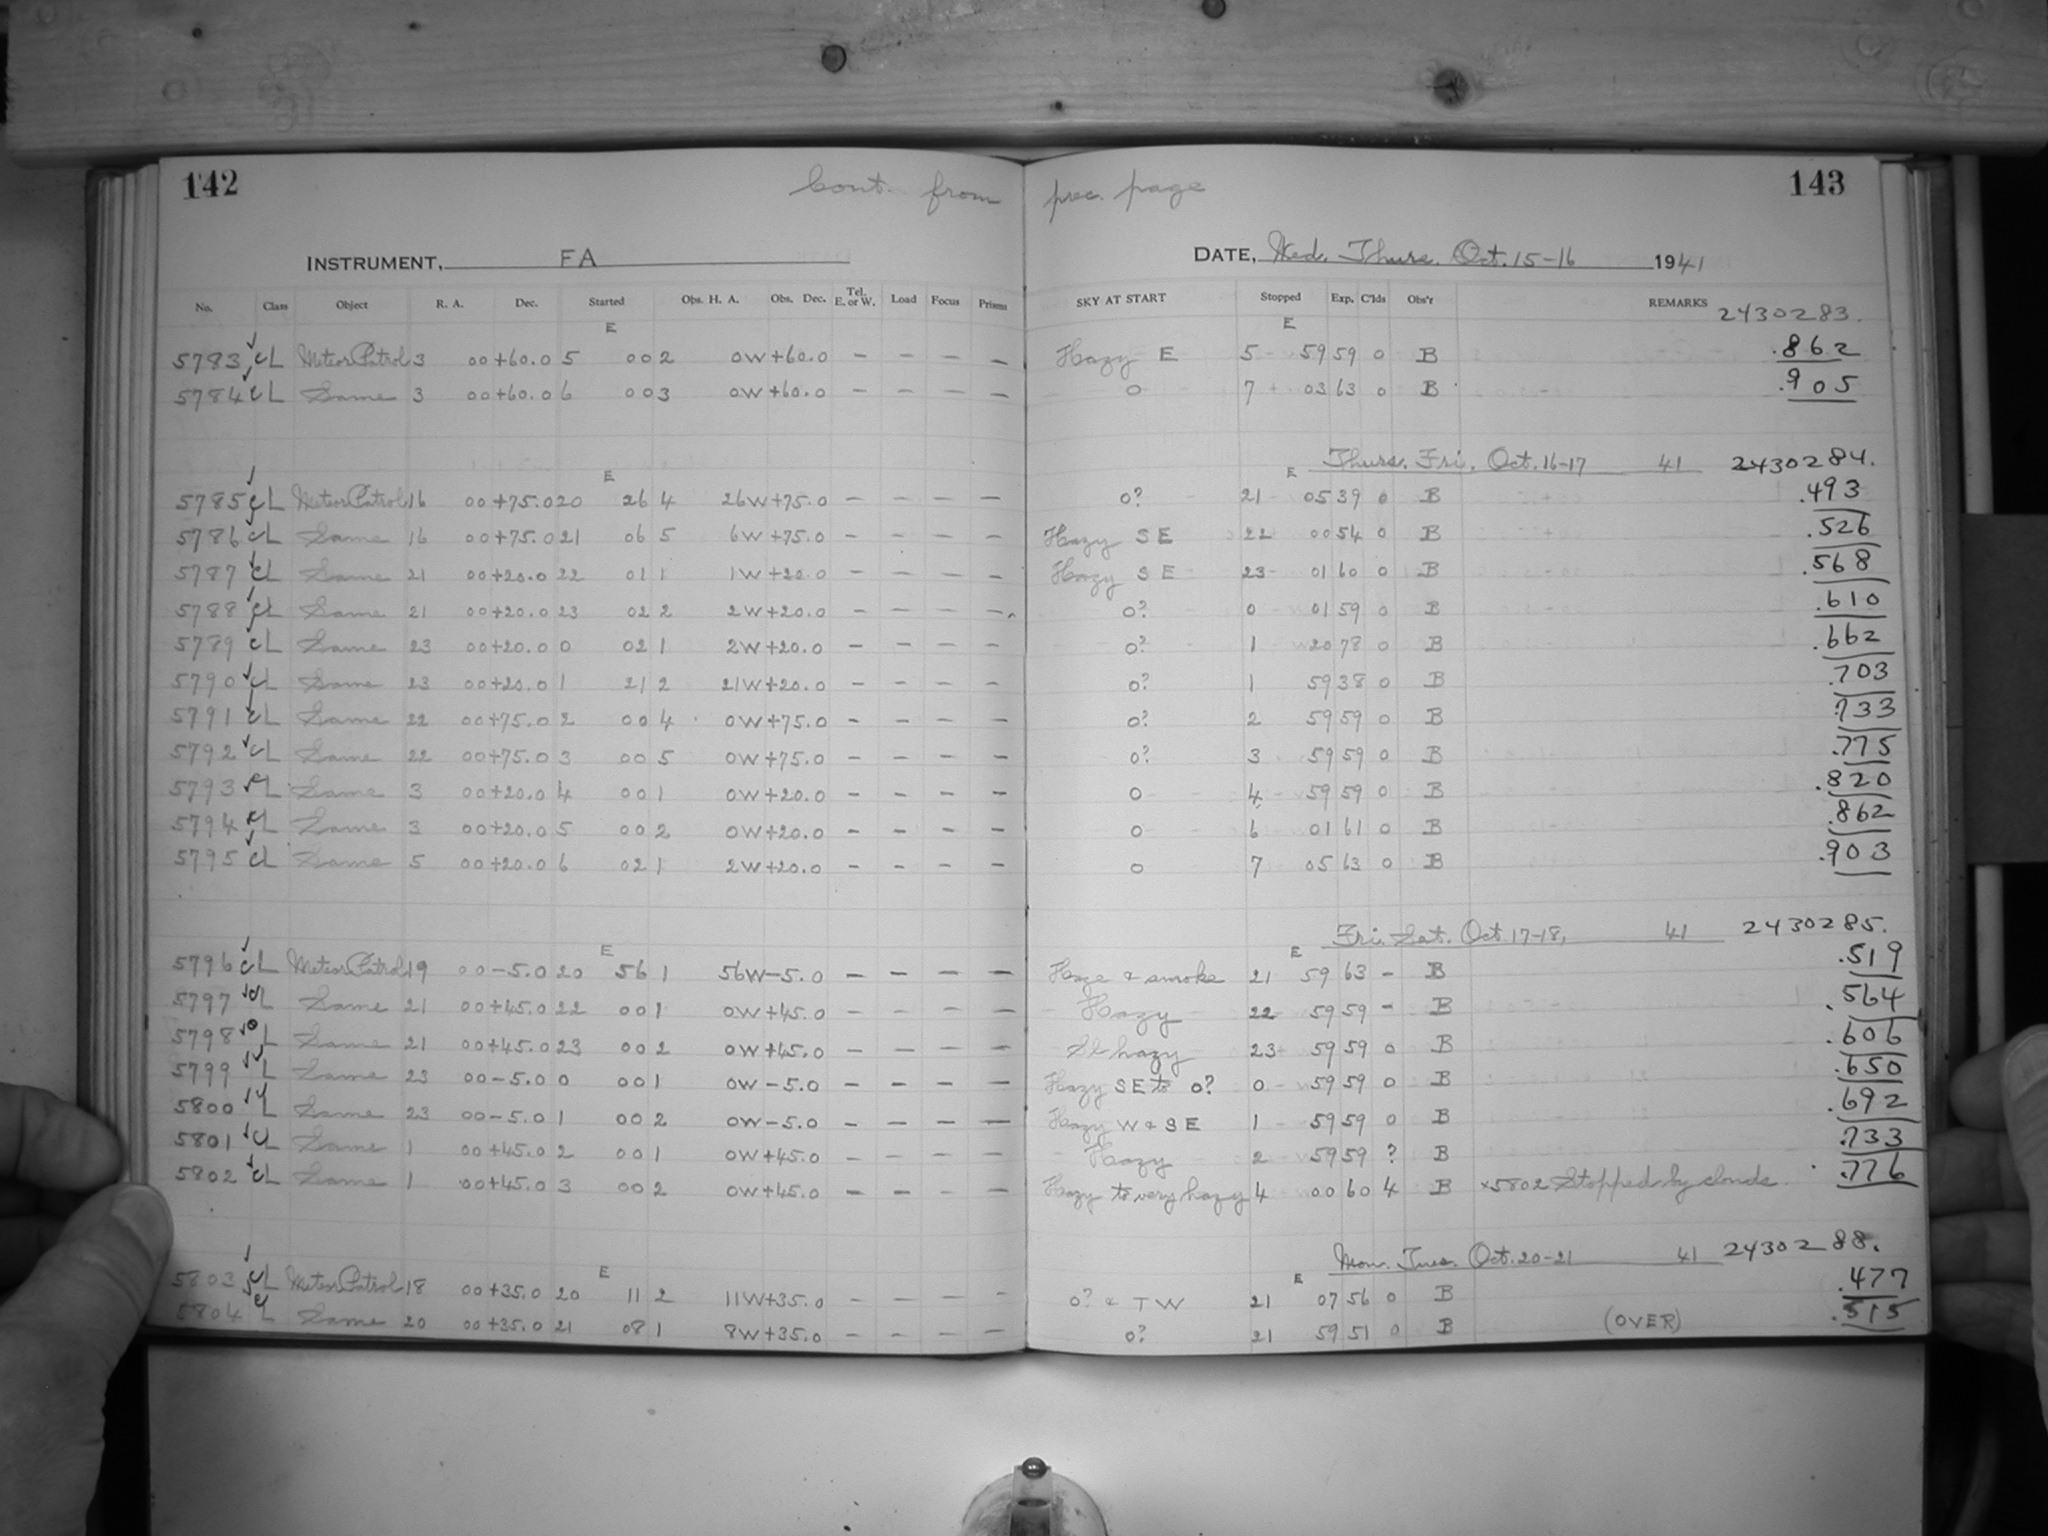 142 Cont. from prec. page 143
INSTRUMENT, FA DATE, Wed. Thurs. Oct. 15-16 1941
No. Class Object R. A. Dec. Started Obs. H. A. Obs. Dec. Tel. E. or W. Load Focus Prisms SKY AT START Stopped Exp. C'lds Obs'r REMARKS 2430283.
E E
5783 CL Meteor Patrol 3 00 +60.0 5 00 2 0W +60.0 – – – – Hazy E 5 59 59 0 B .862
5784 CL Same 3 00 +60.0 6 00 3 0W +60.0 – – – – 0 7 03 63 0 B .905
E E Thurs. Fri. Oct. 16-17 41 2430284.
5785 CL Meteor Patrol 16 00 +75.0 20 26 4 26W +75.0 – – – – 0? 21 05 39 0 B .493
5786 CL Same 16 00 +75.0 21 06 5 6W +75.0 – – – – Hazy SE 22 00 54 0 B .526
5787 CL Same 21 00 +20.0 22 01 1 1W +20.0 – – – – Hazy SE 23 01 60 0 B .568
5788 CL Same 21 00 +20.0 23 02 2 2W +20.0 – – – – 0? 0 01 59 0 B .610
5789 CL Same 23 00 +20.0 0 02 1 2W +20.0 – – – – 0? 1 20 78 0 B .662
5790 CL Same 23 00 +20.0 1 21 2 21W +20.0 – – – – 0? 1 59 38 0 B .703
5791 CL Same 22 00 +75.0 2 00 4 0W +75.0 – – – – 0? 2 59 59 0 B .733
5792 CL Same 22 00 +75.0 3 00 5 0W +75.0 – – – – 0? 3 59 59 0 B .775
5793 CL Same 3 00 +20.0 4 00 1 0W +20.0 – – – – 0 4 59 59 0 B .820
5794 CL Same 3 00 +20.0 5 00 2 0W +20.0 – – – – 0 6 01 61 0 B .862
5795 CL Same 5 00 +20.0 6 02 1 2W +20.0 – – – – 0 7 05 63 0 B .903
E E Fri. Sat. Oct. 17-18, 41 2430285.
5796 CL Meteor Patrol 19 00 -5.0 20 56 1 56W -5.0 – – – – Haze & smoke 21 59 63 – B .519
5797 CL Same 21 00 +45.0 22 00 1 0W +45.0 – – – – Hazy 22 59 59 – B .564
5798 CL Same 21 00 +45.0 23 00 2 0W +45.0 – – – – Sl hazy 23 59 59 0 B .606
5799 CL Same 23 00 -5.0 0 00 1 0W -5.0 – – – – Hazy SE to 0? 0 59 59 0 B .650
5800 CL Same 23 00 -5.0 1 00 2 0W -5.0 – – – – Hazy W & SE 1 59 59 0 B .692
5801 CL Same 1 00 +45.0 2 00 1 0W +45.0 – – – – Hazy 2 59 59 ? B .733
5802 CL Same 1 00 +45.0 3 00 2 0W +45.0 – – – – Hazy to very hazy 4 00 60 4 B x5802 Stopped by clouds. .776
E E Mon. Tues. Oct. 20-21 41 2430288.
5803 CL Meteor Patrol 18 00 +35.0 20 11 2 11W +35.0 – – – – 0? & TW 21 07 56 0 B .477
5804 CL Same 20 00 +35.0 21 08 1 8W +35.0 – – – – 0? 21 59 51 0 B (OVER) .515